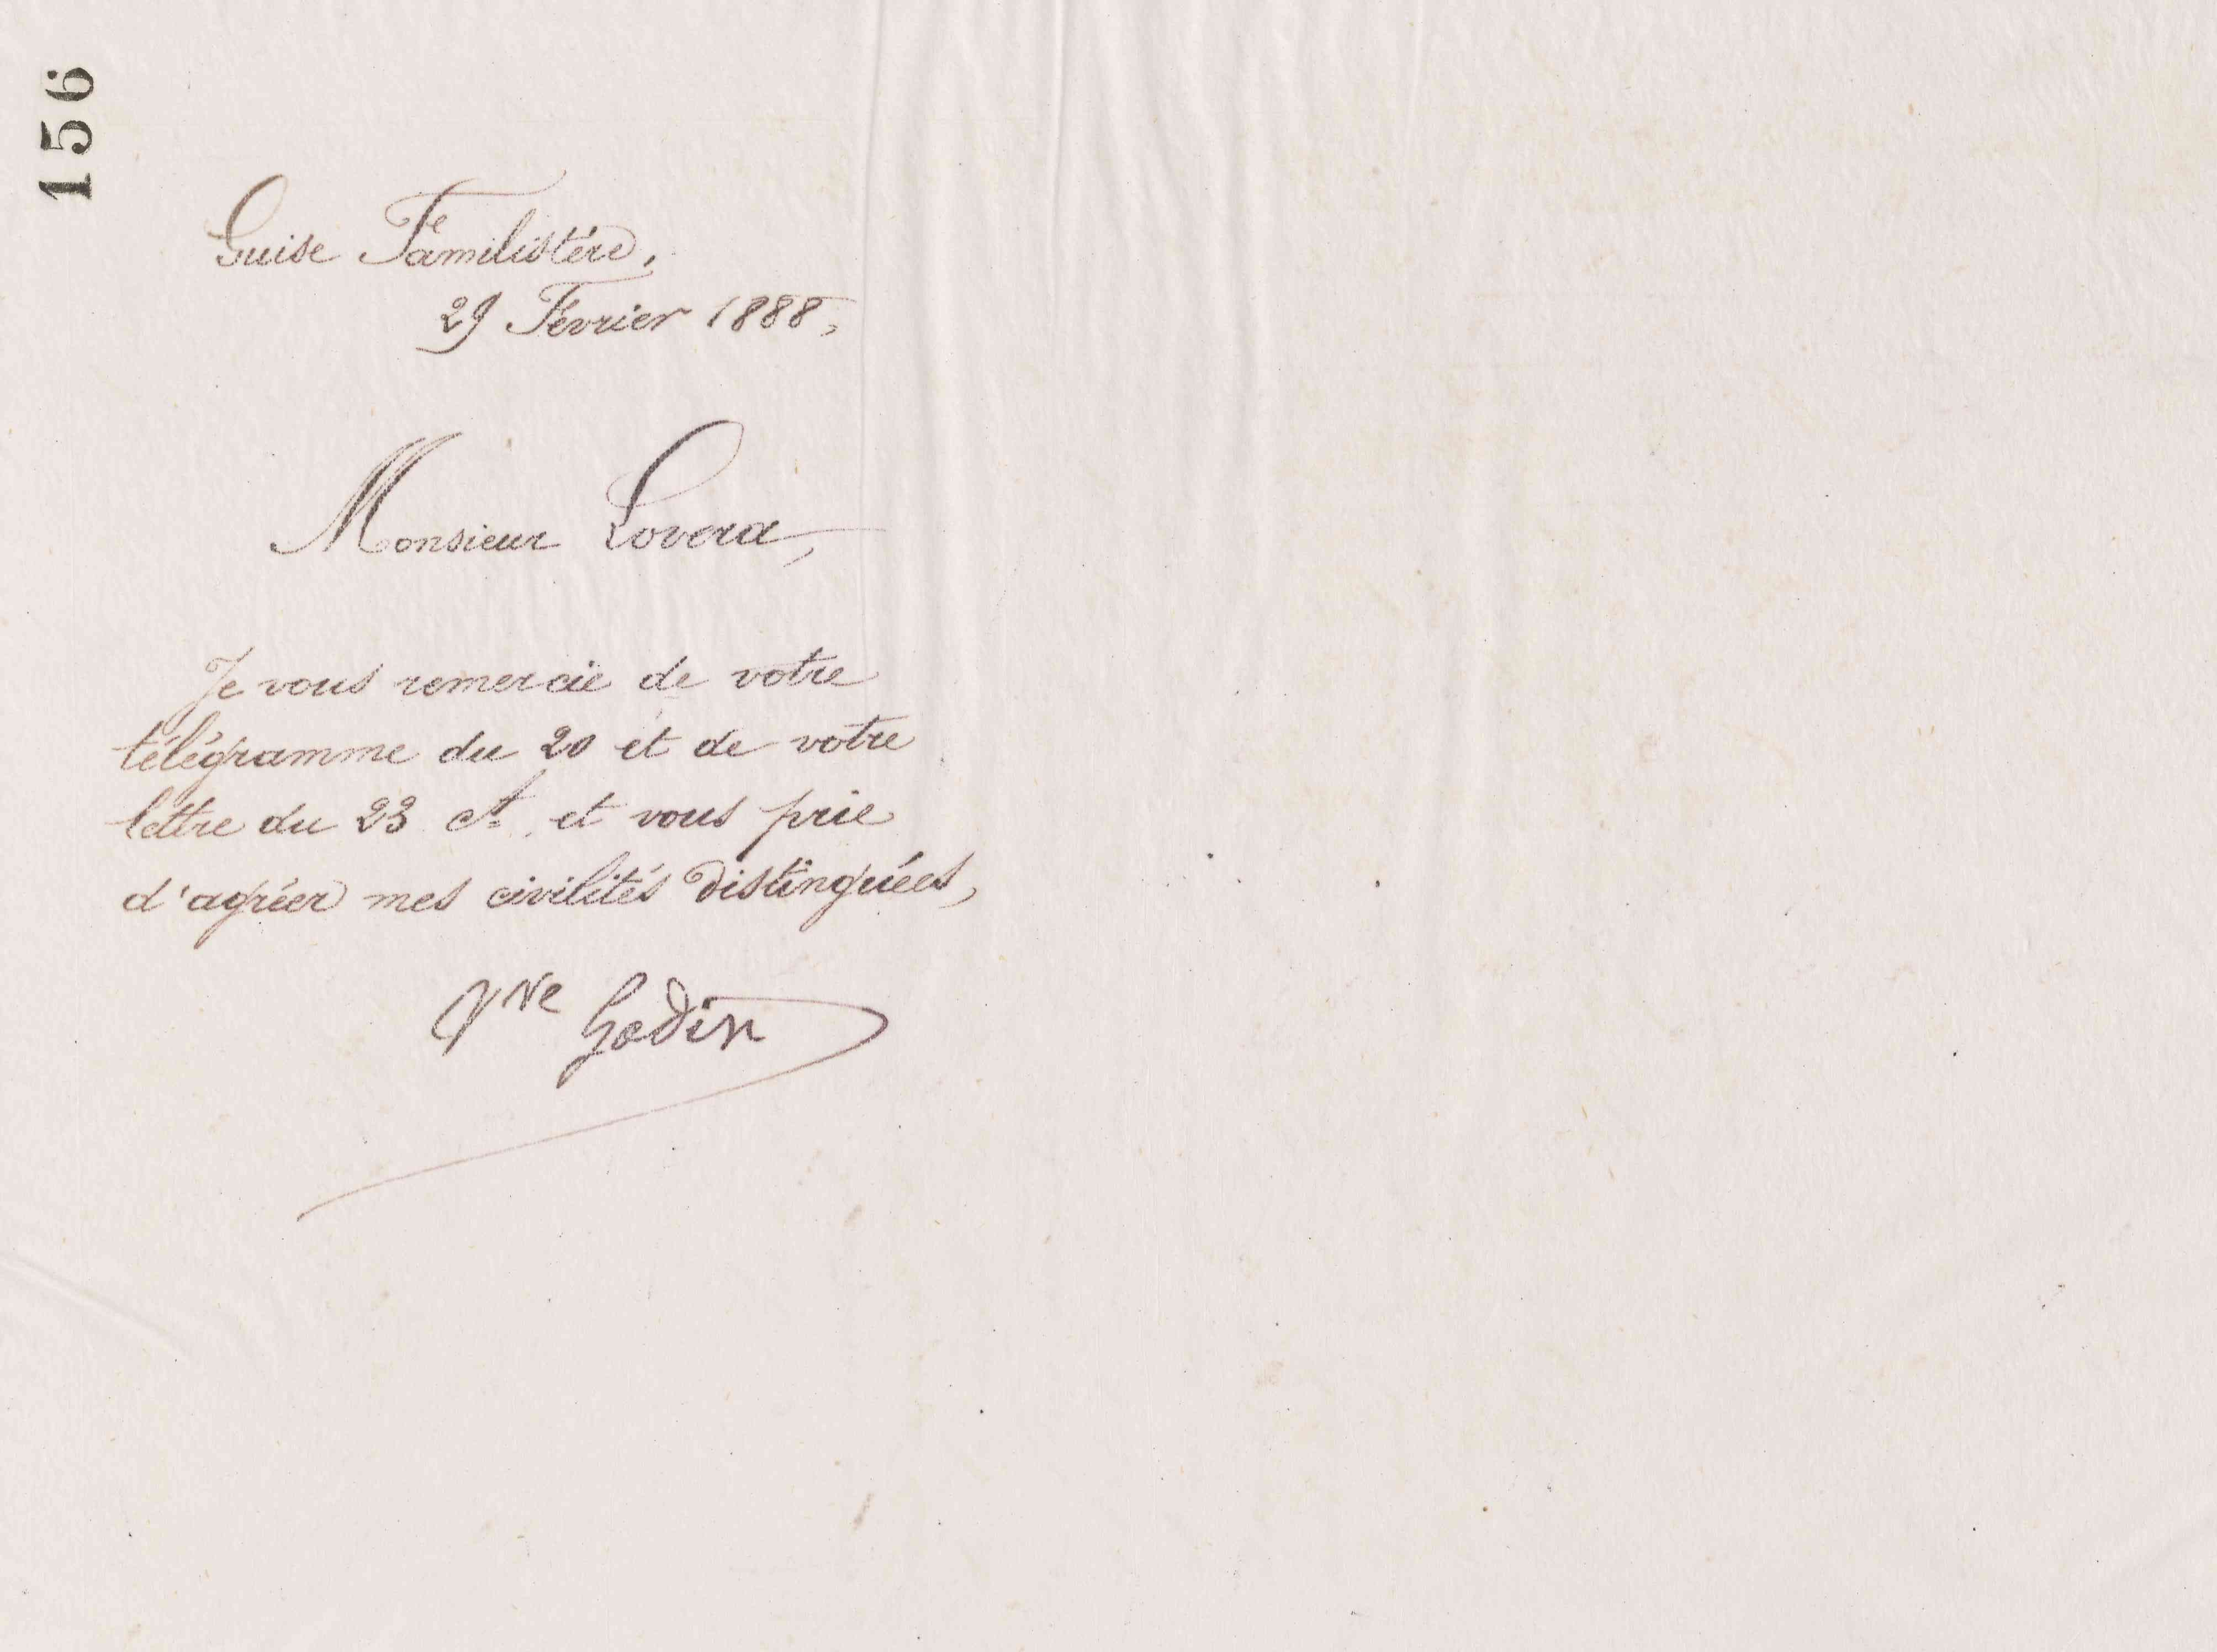 156
Guise Familistère,
29 Février 1888,
Monsieur Lovera,
Je vous remercie de votre
télégramme du 20 et de votre
lettre du 23 ct. et vous prie
d'agréer mes civilités distinguées,
Vve Godin